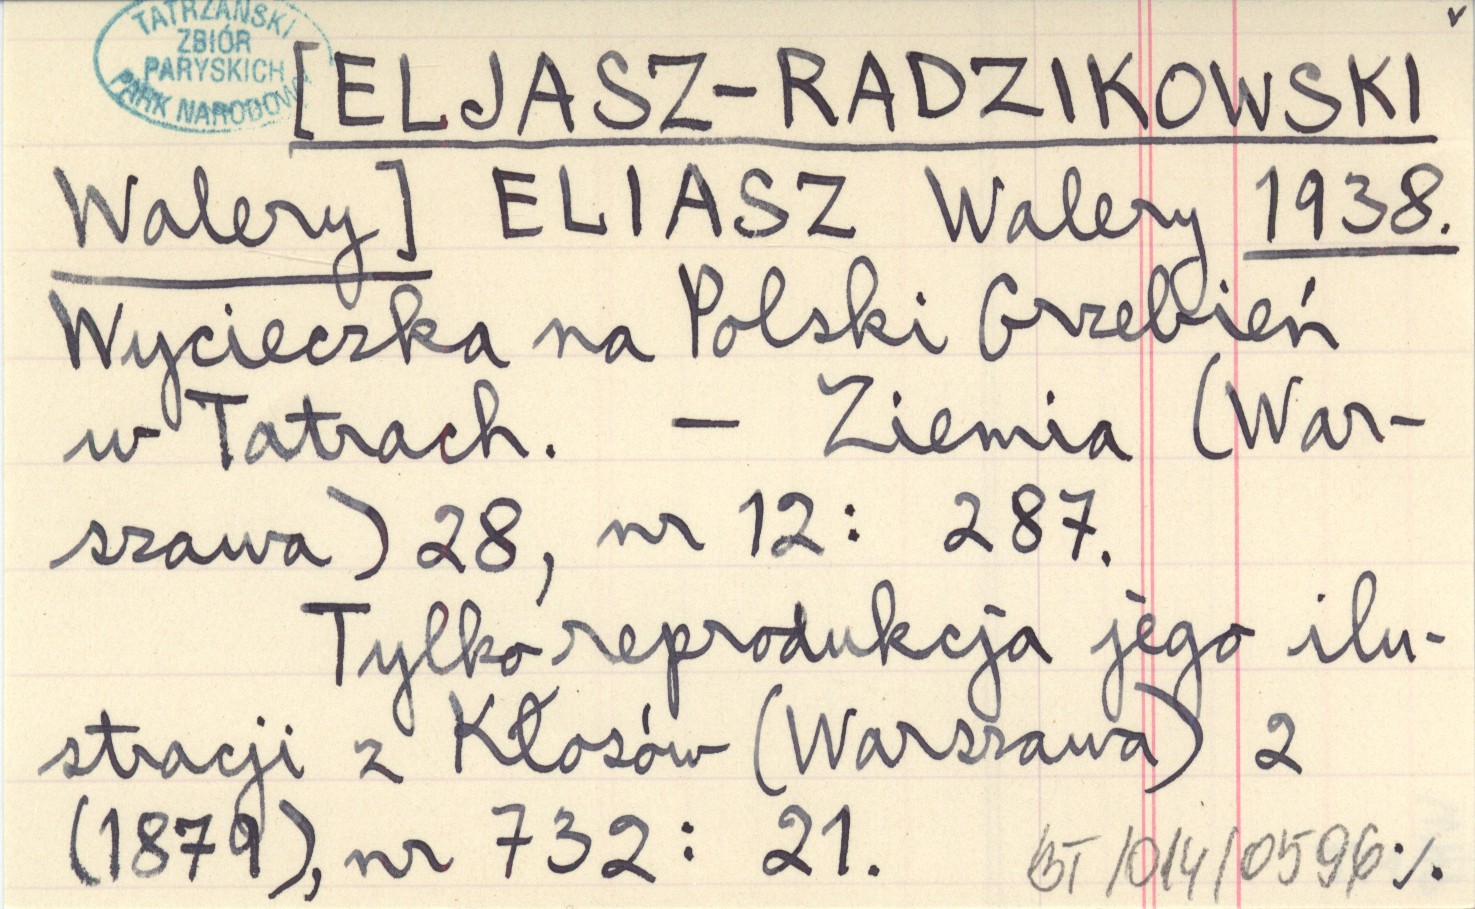 TATRZAŃSKI
ZBIÓR
PARYSKICH
PARK NARODOWY
v
[ELJASZ-RADZIKOWSKI
Walery] ELIASZ Walery 1938.
Wycieczka na Polski Grzebień
w Tatrach. — Ziemia (War-
szawa) 28, nr 12: 287.
Tylko reprodukcja jego ilu-
stracji z Kłosów (Warszawa) 2
(1879), nr 732: 21.
BT/014/0596 ./.